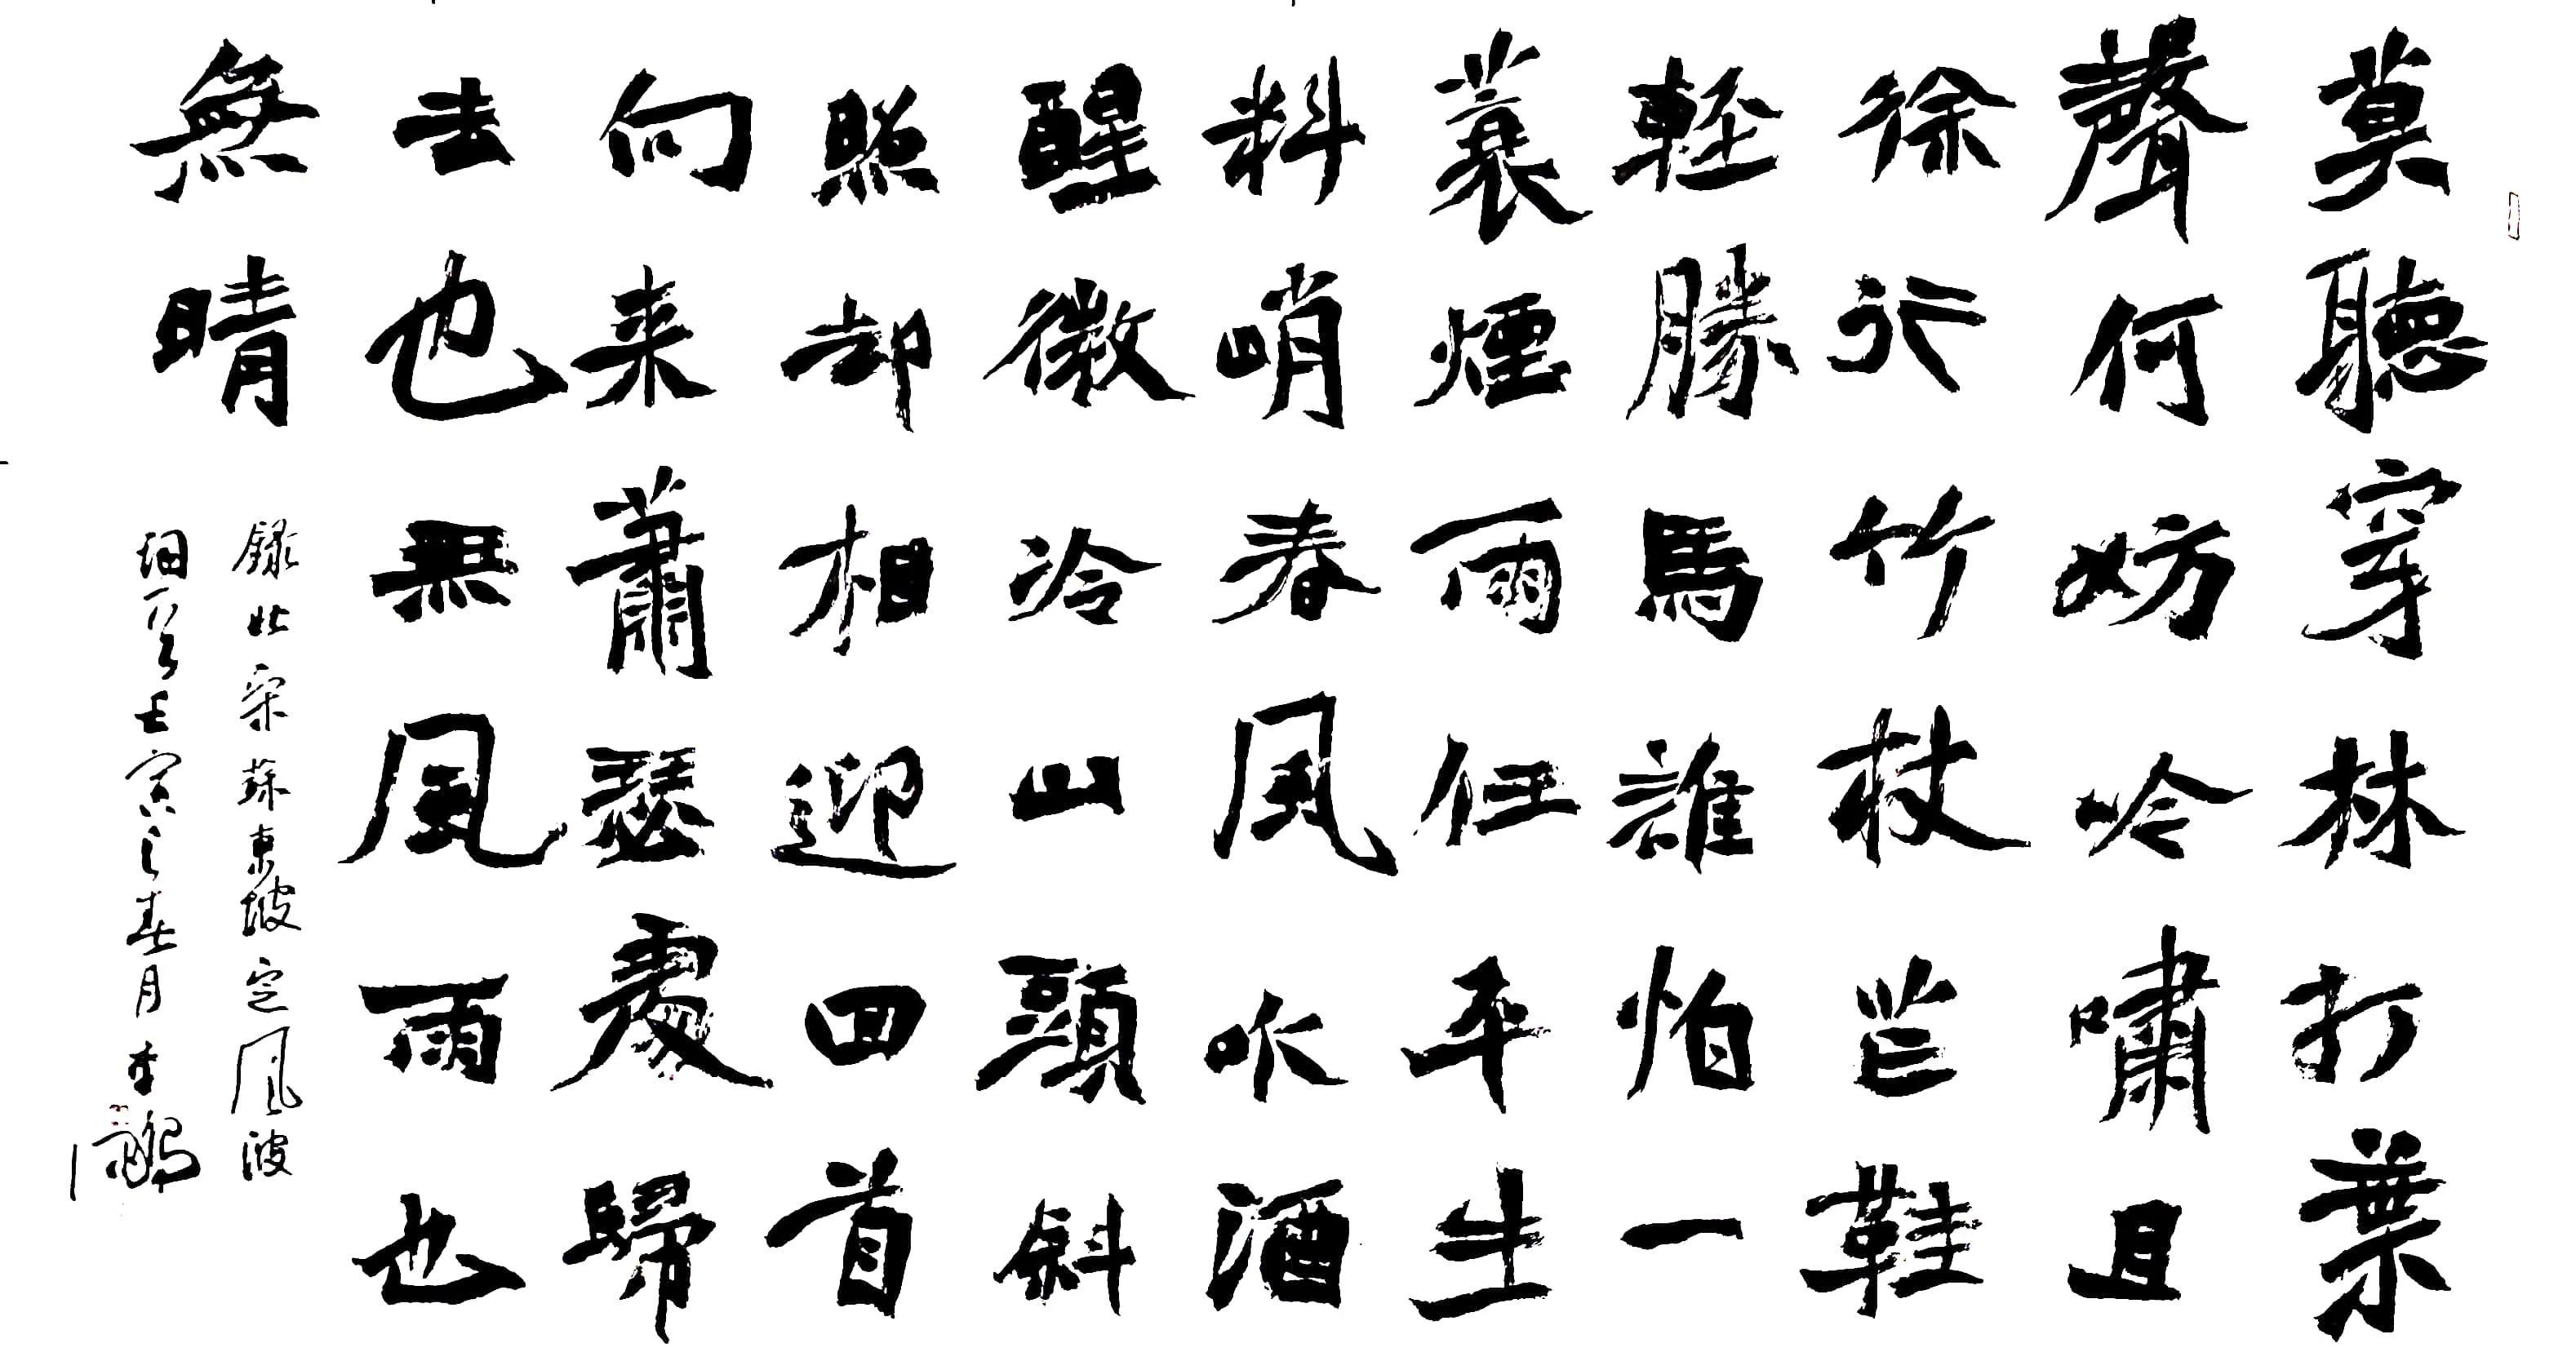 莫聽穿林打葉
聲何妨吟嘯且
徐行竹杖芒鞋
輕勝馬誰怕一
蓑煙雨任平生
料峭春風吹酒
醒微冷山頭斜
照却相迎回首
向来蕭瑟處歸
去也無風雨也
無晴
錄北宋蘇東坡定風波
詞一首壬寅之春月李